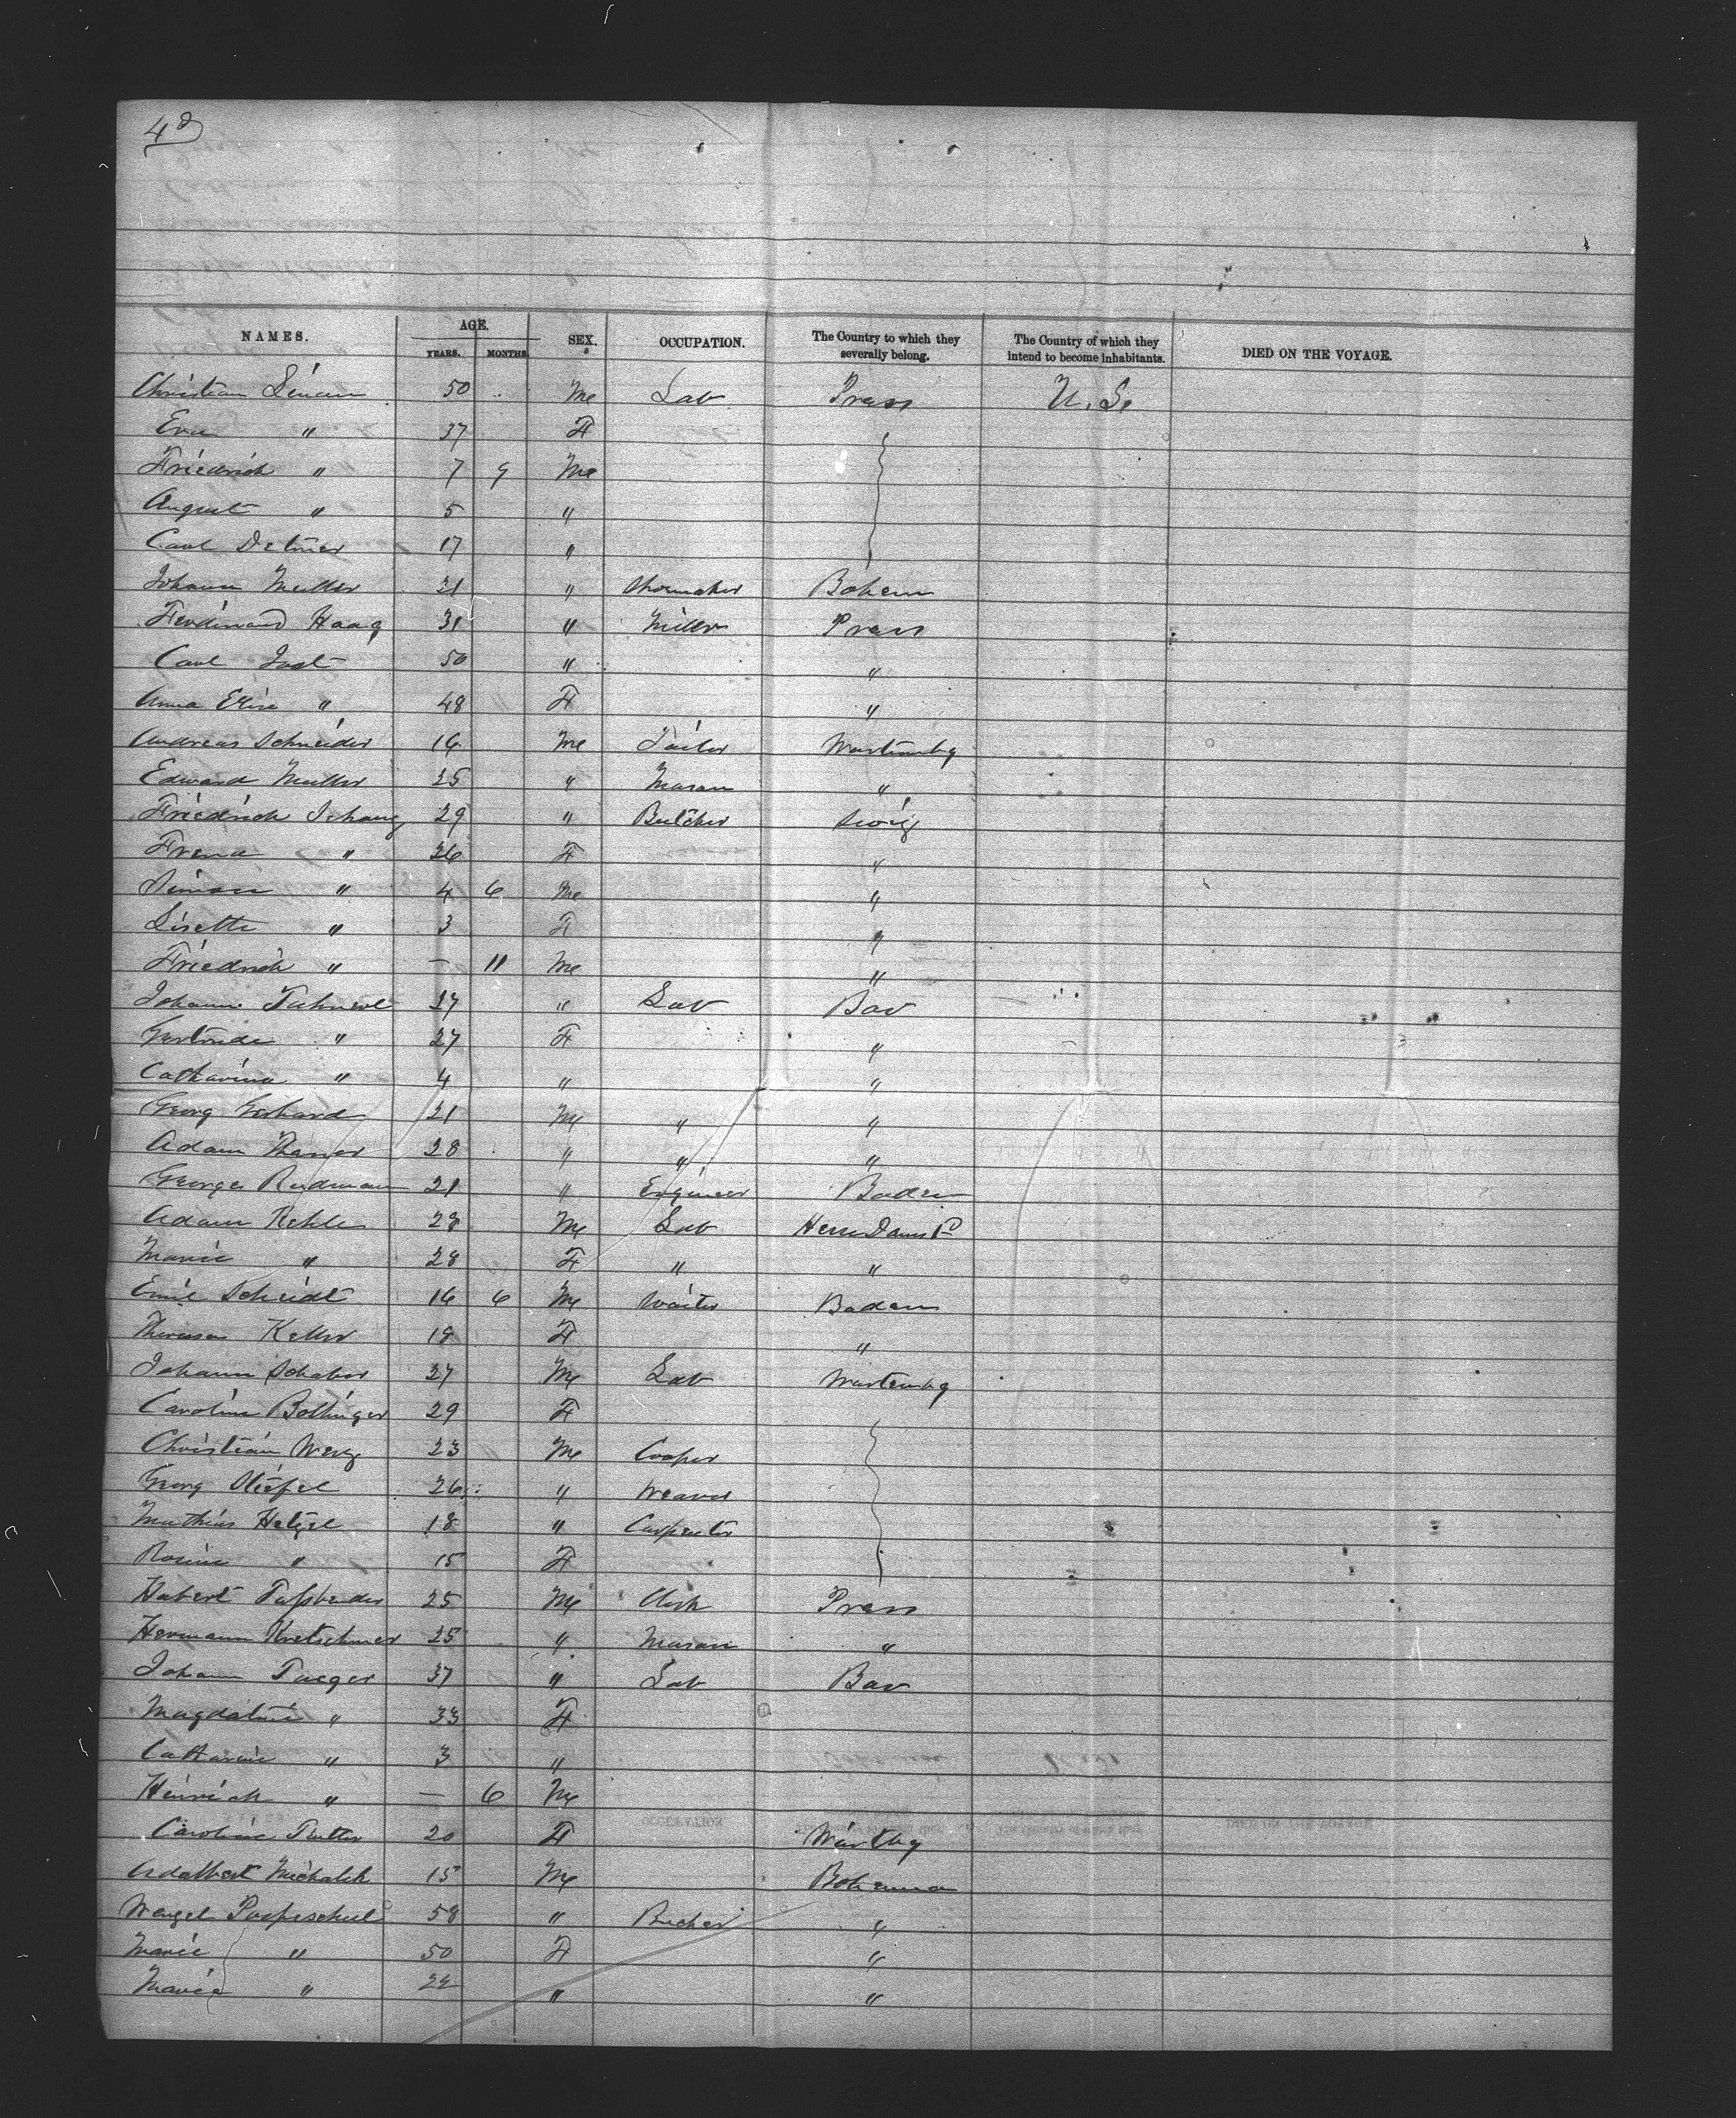 48
NAMES. AGE. YEARS. MONTHS. SEX. OCCUPATION. The Country to which they severally belong. The Country of which they intend to become inhabitants. DIED ON THE VOYAGE.
Christian 50 Me Lab Pruss U. S.
Eva " 37 F
Friedrich " 7 9 Me
August " 5 "
Carl Detmer 17 "
Johann Muller 21 " Shoemaker Bohem
Ferdinand Haag 31 " Miller Pruss
Carl Jost 50 " "
Anna Elise " 48 F "
Andreas Schneider 16 Me Tailor Wurtembg
Edward Muller 25 " Mason "
Friedrich Schaug 29 " Butcher Swiz
Frena " 26 F "
Simon " 4 6 Me "
Lisette " 3 F "
Friedrich " — 11 Me "
Johann 37 " Lab Bav
Gertrude " 27 F "
Catharina " 4 " "
Georg Gerhard 21 Me " "
Adam 28 " " "
George Rudman 21 " Engineer Baden
Adam Kehle 28 Me Lab Hesse Damst
Marie " 28 F " "
Emil Scheidt 16 6 Me Waiter Baden
Theresa Keller 18 F "
Johann Schaber 27 Me Lab Wurtembg
Caroline Bollinger 29 F
Christian Werz 23 Me Cooper
Georg Stiefel 26 " Weaver
Mathias Hetzel 18 " Carpenter
Rosine " 15 F
Hubert Fassbender 25 Me Clerk Pruss
Hermann Kretschmer 25 " Mason "
Johann Jaeger 37 " Lab Bav
Magdalene " 33 F
Catharine " 3 "
Heinrich " — 6 Me
Caroline 20 F Wurtbg
Adalbert Michalek 15 Me Bohemia
Wenzel Pospeschiel 58 " "
Marie " 50 F "
Marie " 22 " "